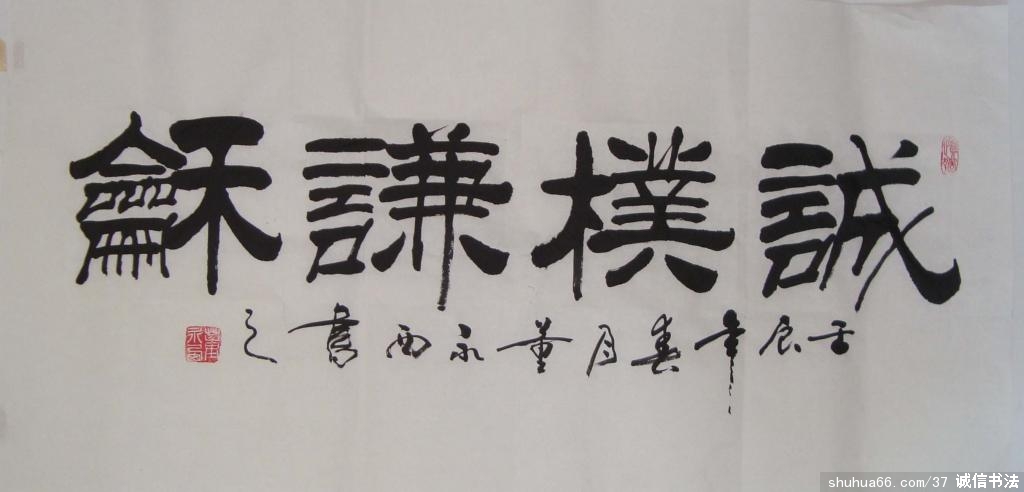 誠樸謙龢
壬辰年春月董永西書之
shuhua66.com/37 诚信书法